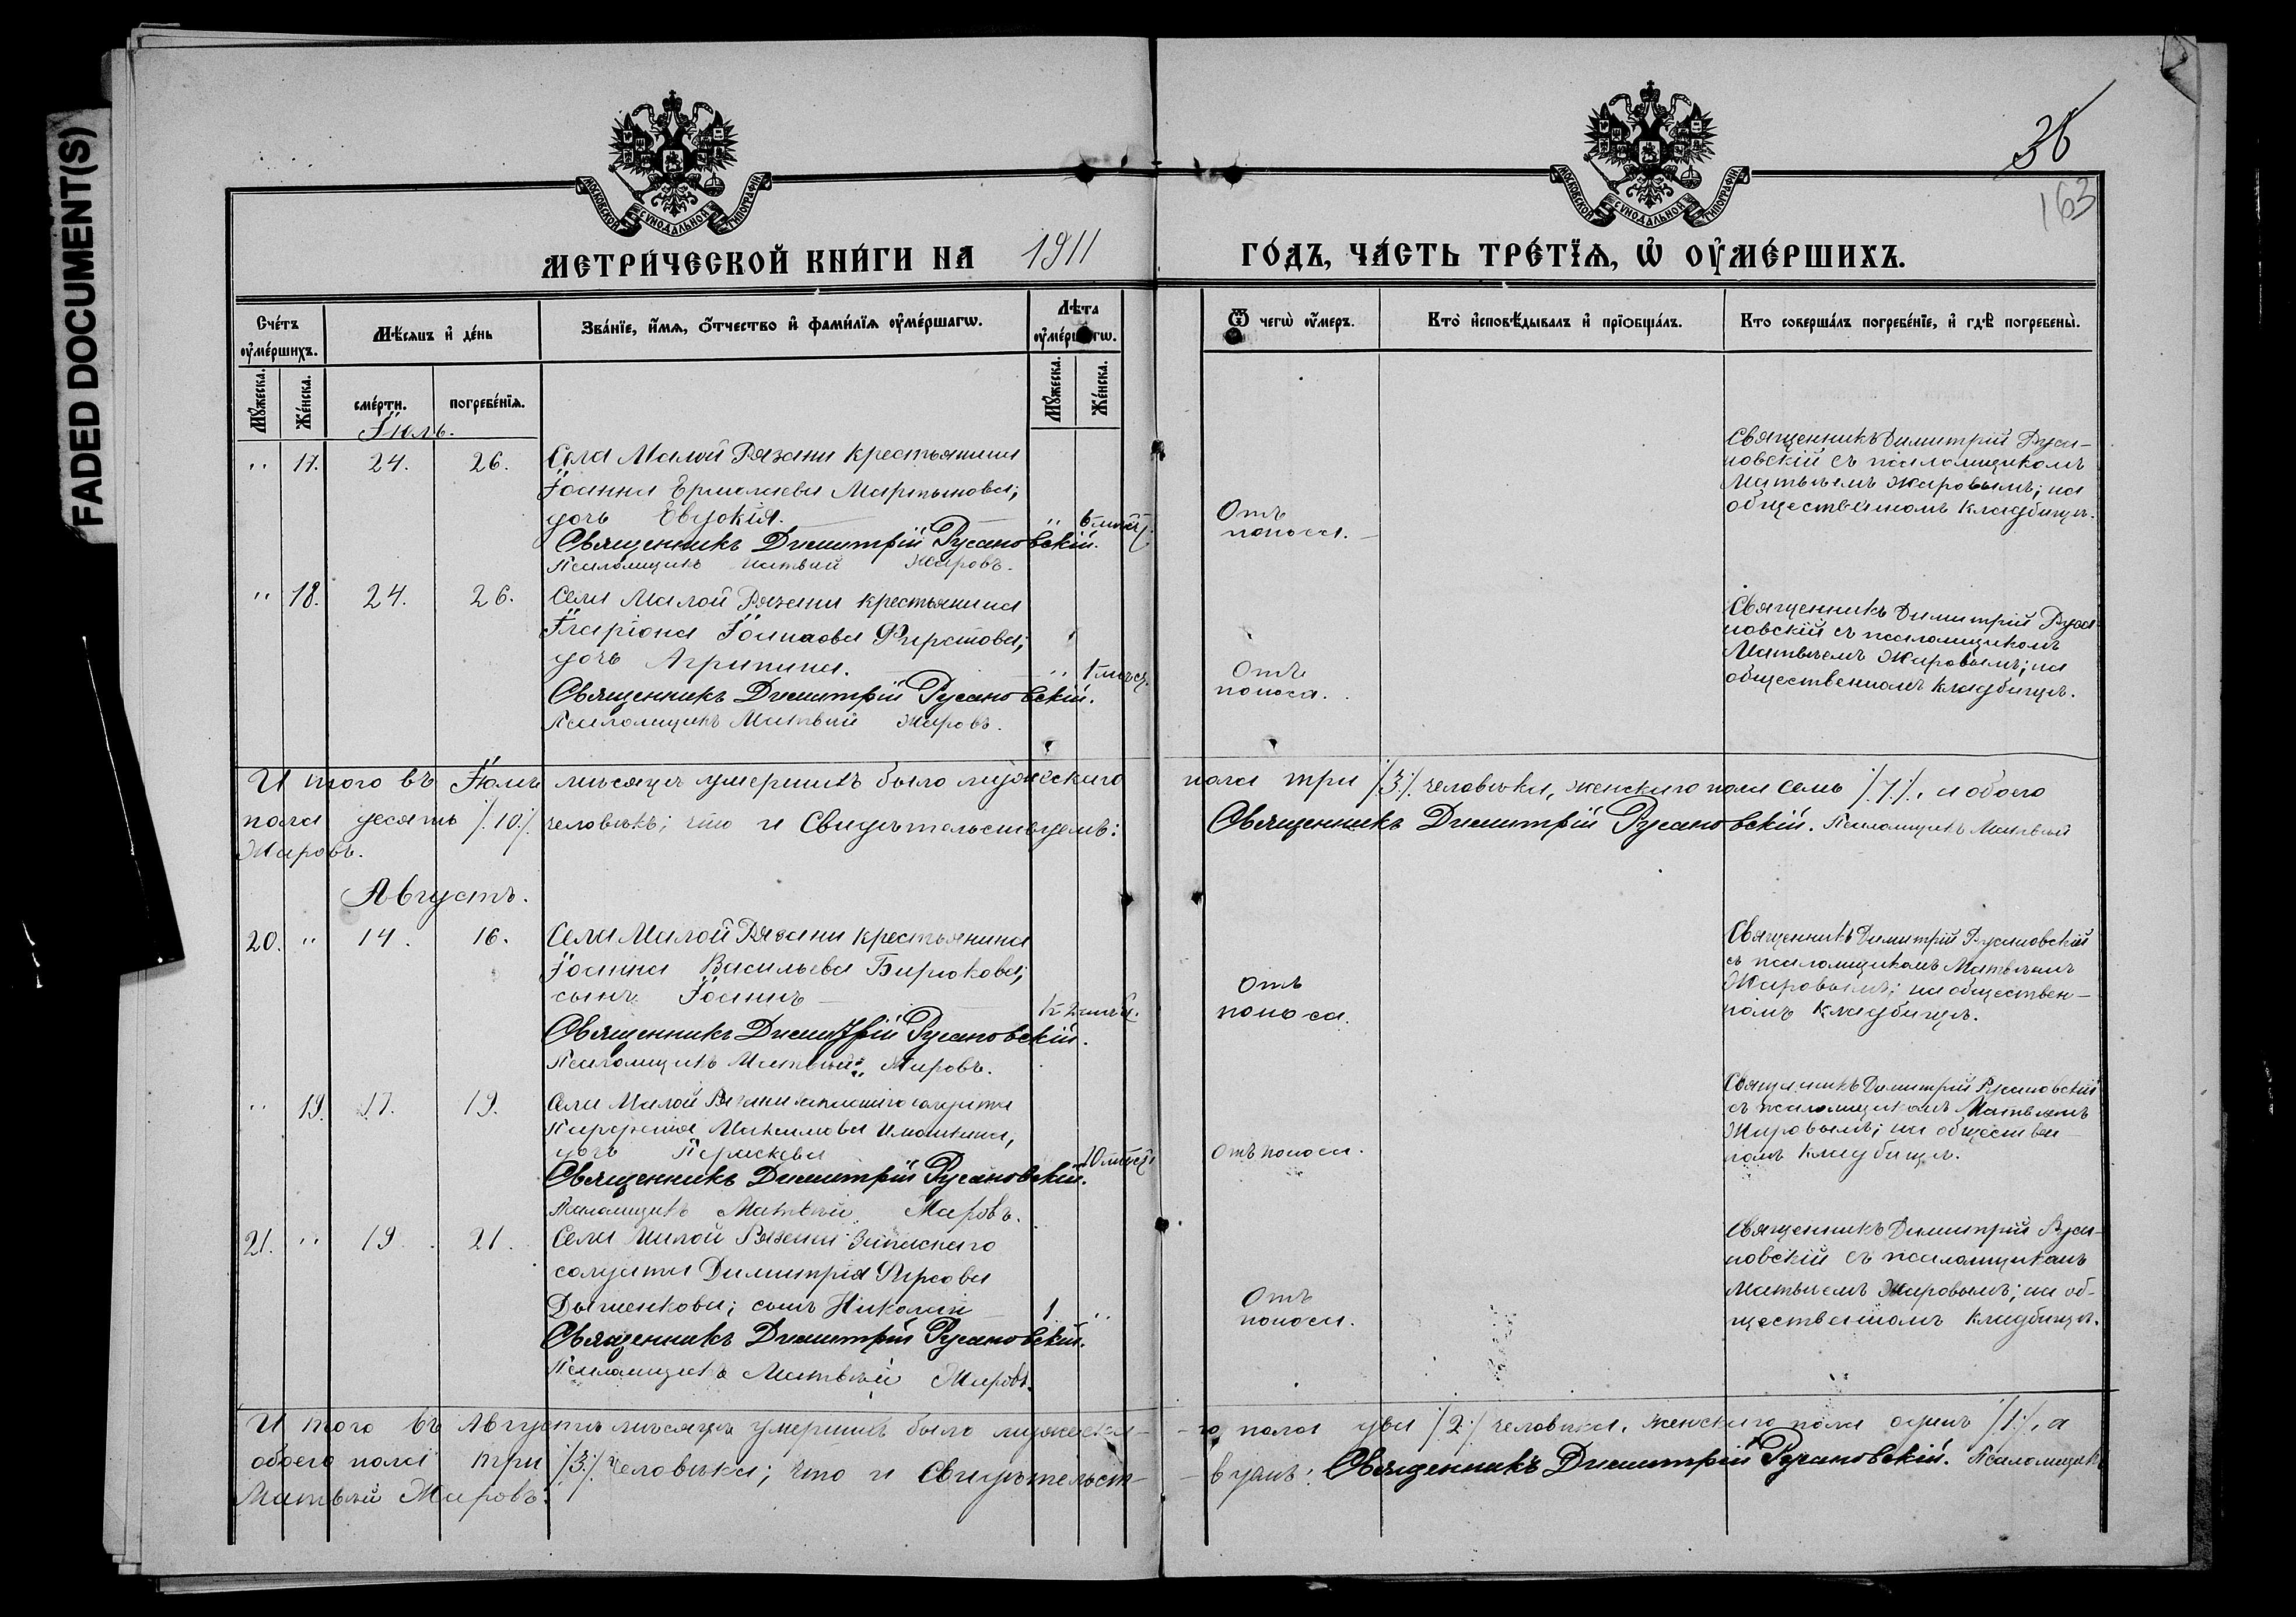 FADED DOCUMENT(S)
МОСКОВСКОЙ СѴНОДАЛЬНОЙ ТИПОГРАФІИ
МОСКОВСКОЙ СѴНОДАЛЬНОЙ ТИПОГРАФІИ
36
163
МЕТРИ́ЧЕСКОЙ КНИ́ГИ НА 1911 ГО́ДЪ, ЧА́СТЬ ТРЕ́ТІѦ, Ѡ ОУМЕ́РШИХЪ.
Сче́тъ оуме́ршихъ.
Мѣ́сяцъ и де́нь
Зва́нїе, и́мя, о́тчество и фами́лїя оуме́ршагѡ.
Лѣ́та оуме́ршагѡ.
Ѿ чегѡ̀ оу́меръ.
Кто̀ исповѣ́дывалъ и прїобща́лъ.
Кто соверша́лъ погребе́нїе, и гдѣ̀ погребены̀.
Му́жеска.
Же́нска.
сме́рти.
погребе́нїя.
Му́жеска.
Же́нска.
Іюль.
" 17. 24. 26.
Села Малой Рязани крестьянина
Іоанна Ермолаева Мартынова;
дочь Евдокія. " 6 мѣсяц.
Священникъ Димитрій Русановскій.
Псаломщикъ Матвѣй Жаровъ.
Отъ
поноса.
Священникъ Димитрій Руса-
новскій съ псаломщикомъ
Матвѣемъ Жаровымъ; на
общественномъ кладбищѣ.
" 18. 24. 26.
Села Малой Рязани крестьянина
Иларіона Фирстова;
дочь Агрипина. " 1 мѣсяц.
Священникъ Димитрій Русановскій.
Псаломщикъ Матвѣй Жаровъ.
Отъ
поноса.
Священникъ Димитрій Руса-
новскій съ псаломщикомъ
Матвѣемъ Жаровымъ; на
общественномъ кладбищѣ.
И того въ Іюлѣ мѣсяцѣ умершихъ было мужескаго пола три /3/. человѣка, женскаго пола семь /7/., а обоего
пола десять /.10./ человѣкъ; что и Свидѣтельствуемъ: Священникъ Димитрій Русановскій. Псаломщикъ Матвѣй
Жаровъ.
Августъ.
20. " 14. 16.
Села Малой Рязани крестьянина
Іоанна Васильева Бирюкова;
сынъ Іоаннъ
Священникъ Димитрій Русановскій.
Псаломщикъ Матвѣй Жаровъ.
Отъ
поноса.
Священникъ Димитрій Русановскій
съ псаломщикомъ Матвѣемъ
Жаровымъ; на обществен-
номъ кладбищѣ.
" 19. 17. 19.
Села Малой Рязани запаснаго солдата
Максимова
дочь Параскева 10 мѣсяц.
Священникъ Димитрій Русановскій.
Псаломщикъ Матвѣй Жаровъ.
Отъ поноса.
Священникъ Димитрій Русановскій
съ псаломщикомъ Матвѣемъ
Жаровымъ; на обществен-
номъ кладбищѣ.
21. " 19. 21.
Села Малой Рязани Запаснаго
солдата Димитрія Фирсова
сынъ Николай 1 "
Священникъ Димитрій Русановскій.
Псаломщикъ Матвѣй Жаровъ.
Отъ
поноса.
Священникъ Димитрій Руса-
новскій съ псаломщикомъ
Матвѣемъ Жаровымъ; на об-
щественномъ кладбищѣ.
И того въ Августѣ мѣсяцѣ умершихъ было мужеска- -го пола два /2/ человѣка, женскаго пола одинъ /1/., а
обоего пола три /3/. человѣка; что и Свидѣтельст- -вуемъ: Священникъ Димитрій Русановскій. Псаломщикъ
Матвѣй Жаровъ.